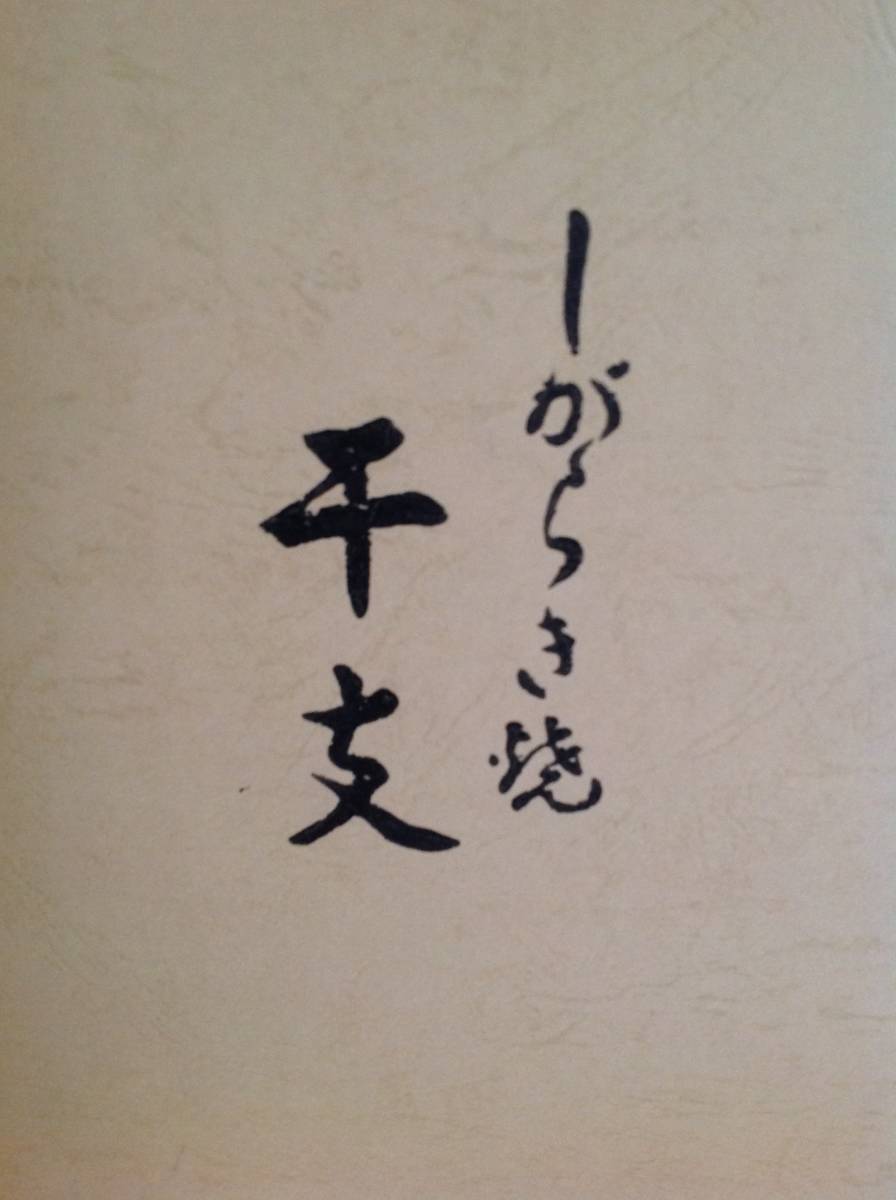 しがらき焼
干支